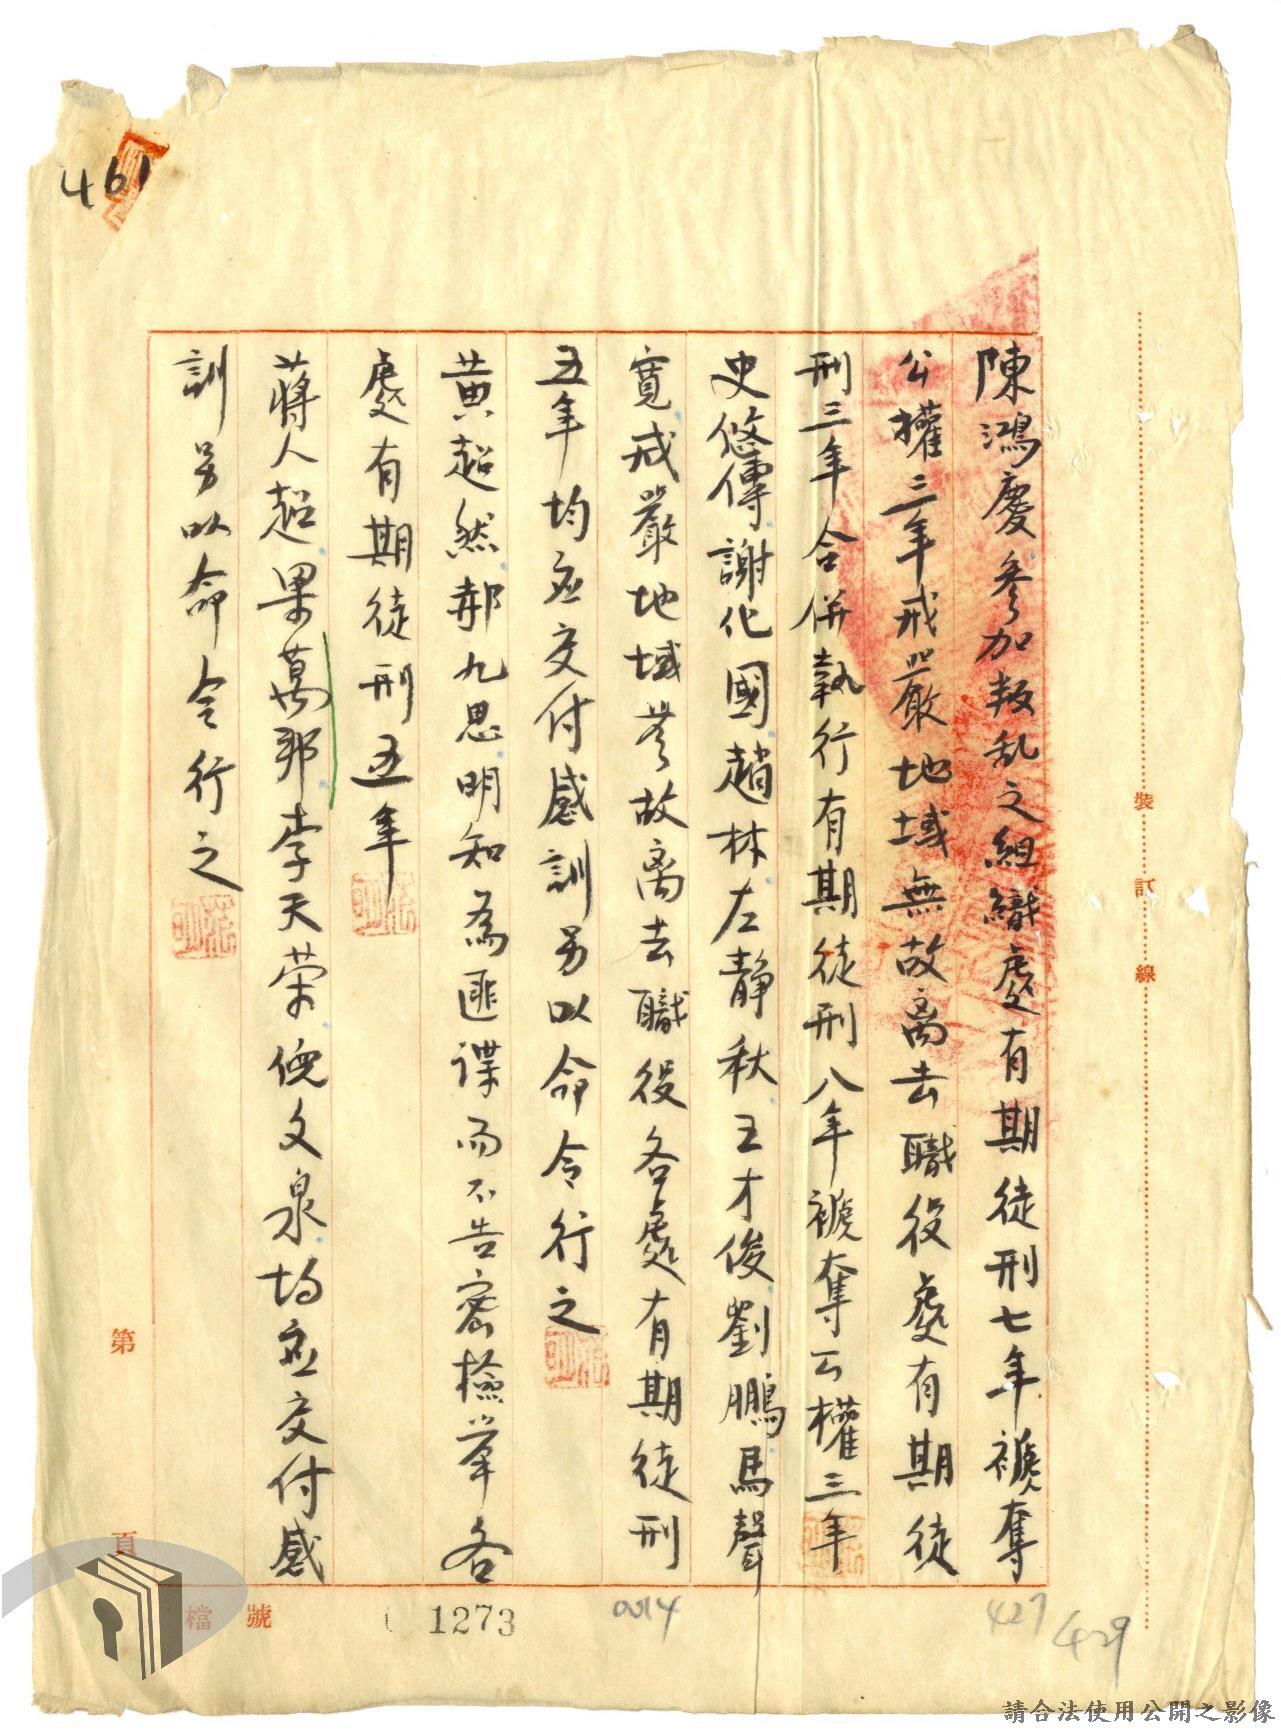 陳鴻慶參加叛乱之組織處有期徒刑七年褫奪
公權三年戒嚴地域無故离去職役處有期徒
刑三年合併執行有期徒刑八年褫奪公權三年
史悠傳謝化國趙林左靜秋王才俊劉鵬馬聲
寬戒嚴地域無故离去職役各處有期徒刑
五年均应交付感訓另以命令行之
黄超然郝九思明知為匪諜而不告密檢举各
處有期徒刑五年
蔣人超果萬邦李天荣倪文泉均应交付感
訓另以命令行之
461
裝訂線
第
頁
檔
號
1273
0014
427
429
請合法使用公開之影像